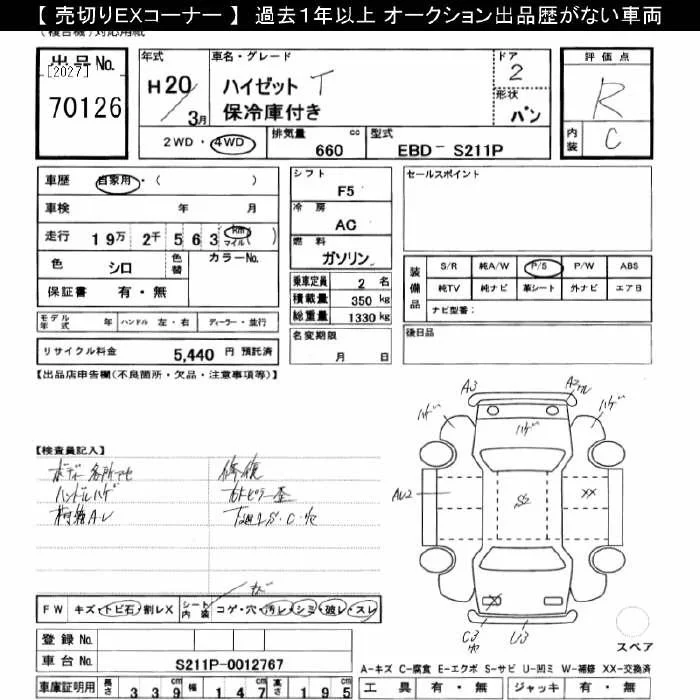 【 売切りEXコーナー 】 過去1年以上 オークション出品歴がない車両
出品No.
[2027]
70126
年式
H20
3月
車名・グレード
ハイゼット T
保冷庫付き
ドア
2
形状
バン
評価点
R
内装
C
2WD・4WD
排気量
660
cc
型式
EBD-S211P
車歴
自家用・( )
車検 年 月
走行 19万 2千 5 6 3 Km マイル ( )
色 シロ
色替
カラーNo.
保証書 有・無
モデル年式 年
ハンドル 左・右
ディーラー・並行
リサイクル料金 5,440 円 預託済
シフト
F5
冷房
AC
燃料
ガソリン
乗車定員 2 名
積載量 350 kg
総重量 1330 kg
名変期限
月 日
セールスポイント
装備品
S/R 純A/W P/S P/W ABS
純TV 純ナビ 革シート 外ナビ エアB
ナビ型番:
後日品
【出品店申告欄(不良箇所・欠品・注意事項等)】
【検査員記入】
ボディー各所アセ
ハンドルハゲ
修復
A3
ハゲ
ハゲ
ハゲ
AU2
S2
XX
X
C3
U3
スペア
FW キズ・トビ石・割レX
シート内装 コゲ・穴・汚レ・シミ・破レ・スレ
登録No.
車台No. S211P-0012767
車庫証明用 長さ 339 cm 幅 147 cm 高さ 195 cm
A-キズ C-腐食 E-エクボ S-サビ U-凹ミ W-補修 XX-交換済
工具 有・無 ジャッキ 有・無